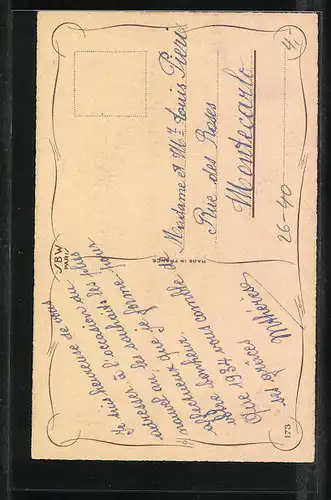 Je suis heureuse de vous
adresser à l'occasion du
nouvel an, les souhaits les plus
affectueux que je forme pour
votre bonheur.
Que 1934 vous comble de
ses grâces
SBW
PARIS
MADE IN FRANCE
173
Madame et Mr Louis Pieri
Rue des Roses
Montecarlo
4-
26-40